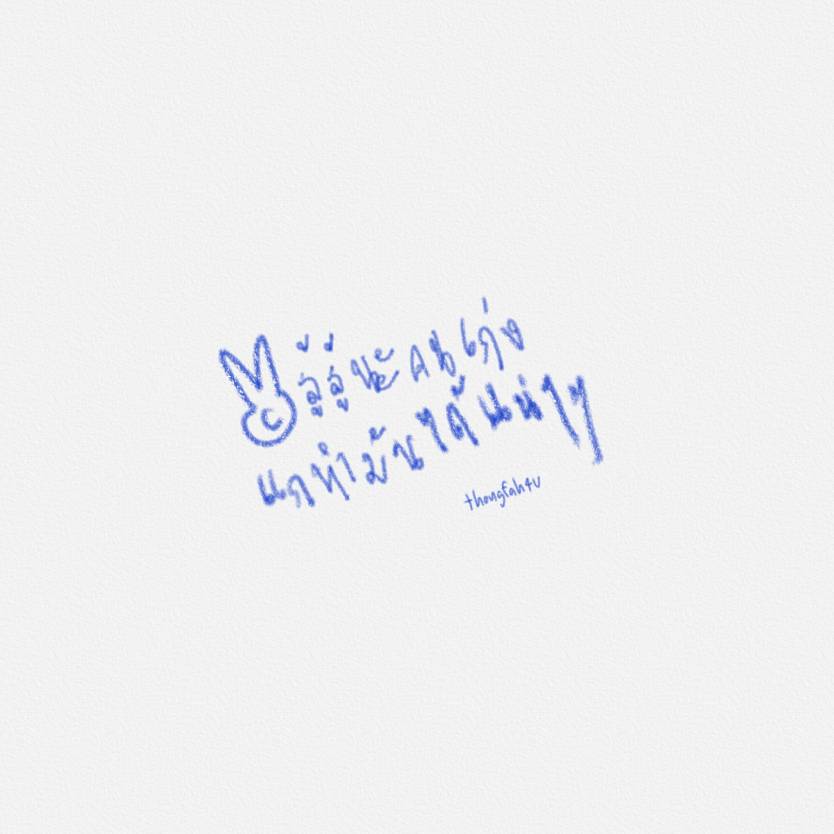 สู้สู้นะคนเก่ง
แกทำมันได้แน่ๆ
thongfah4u